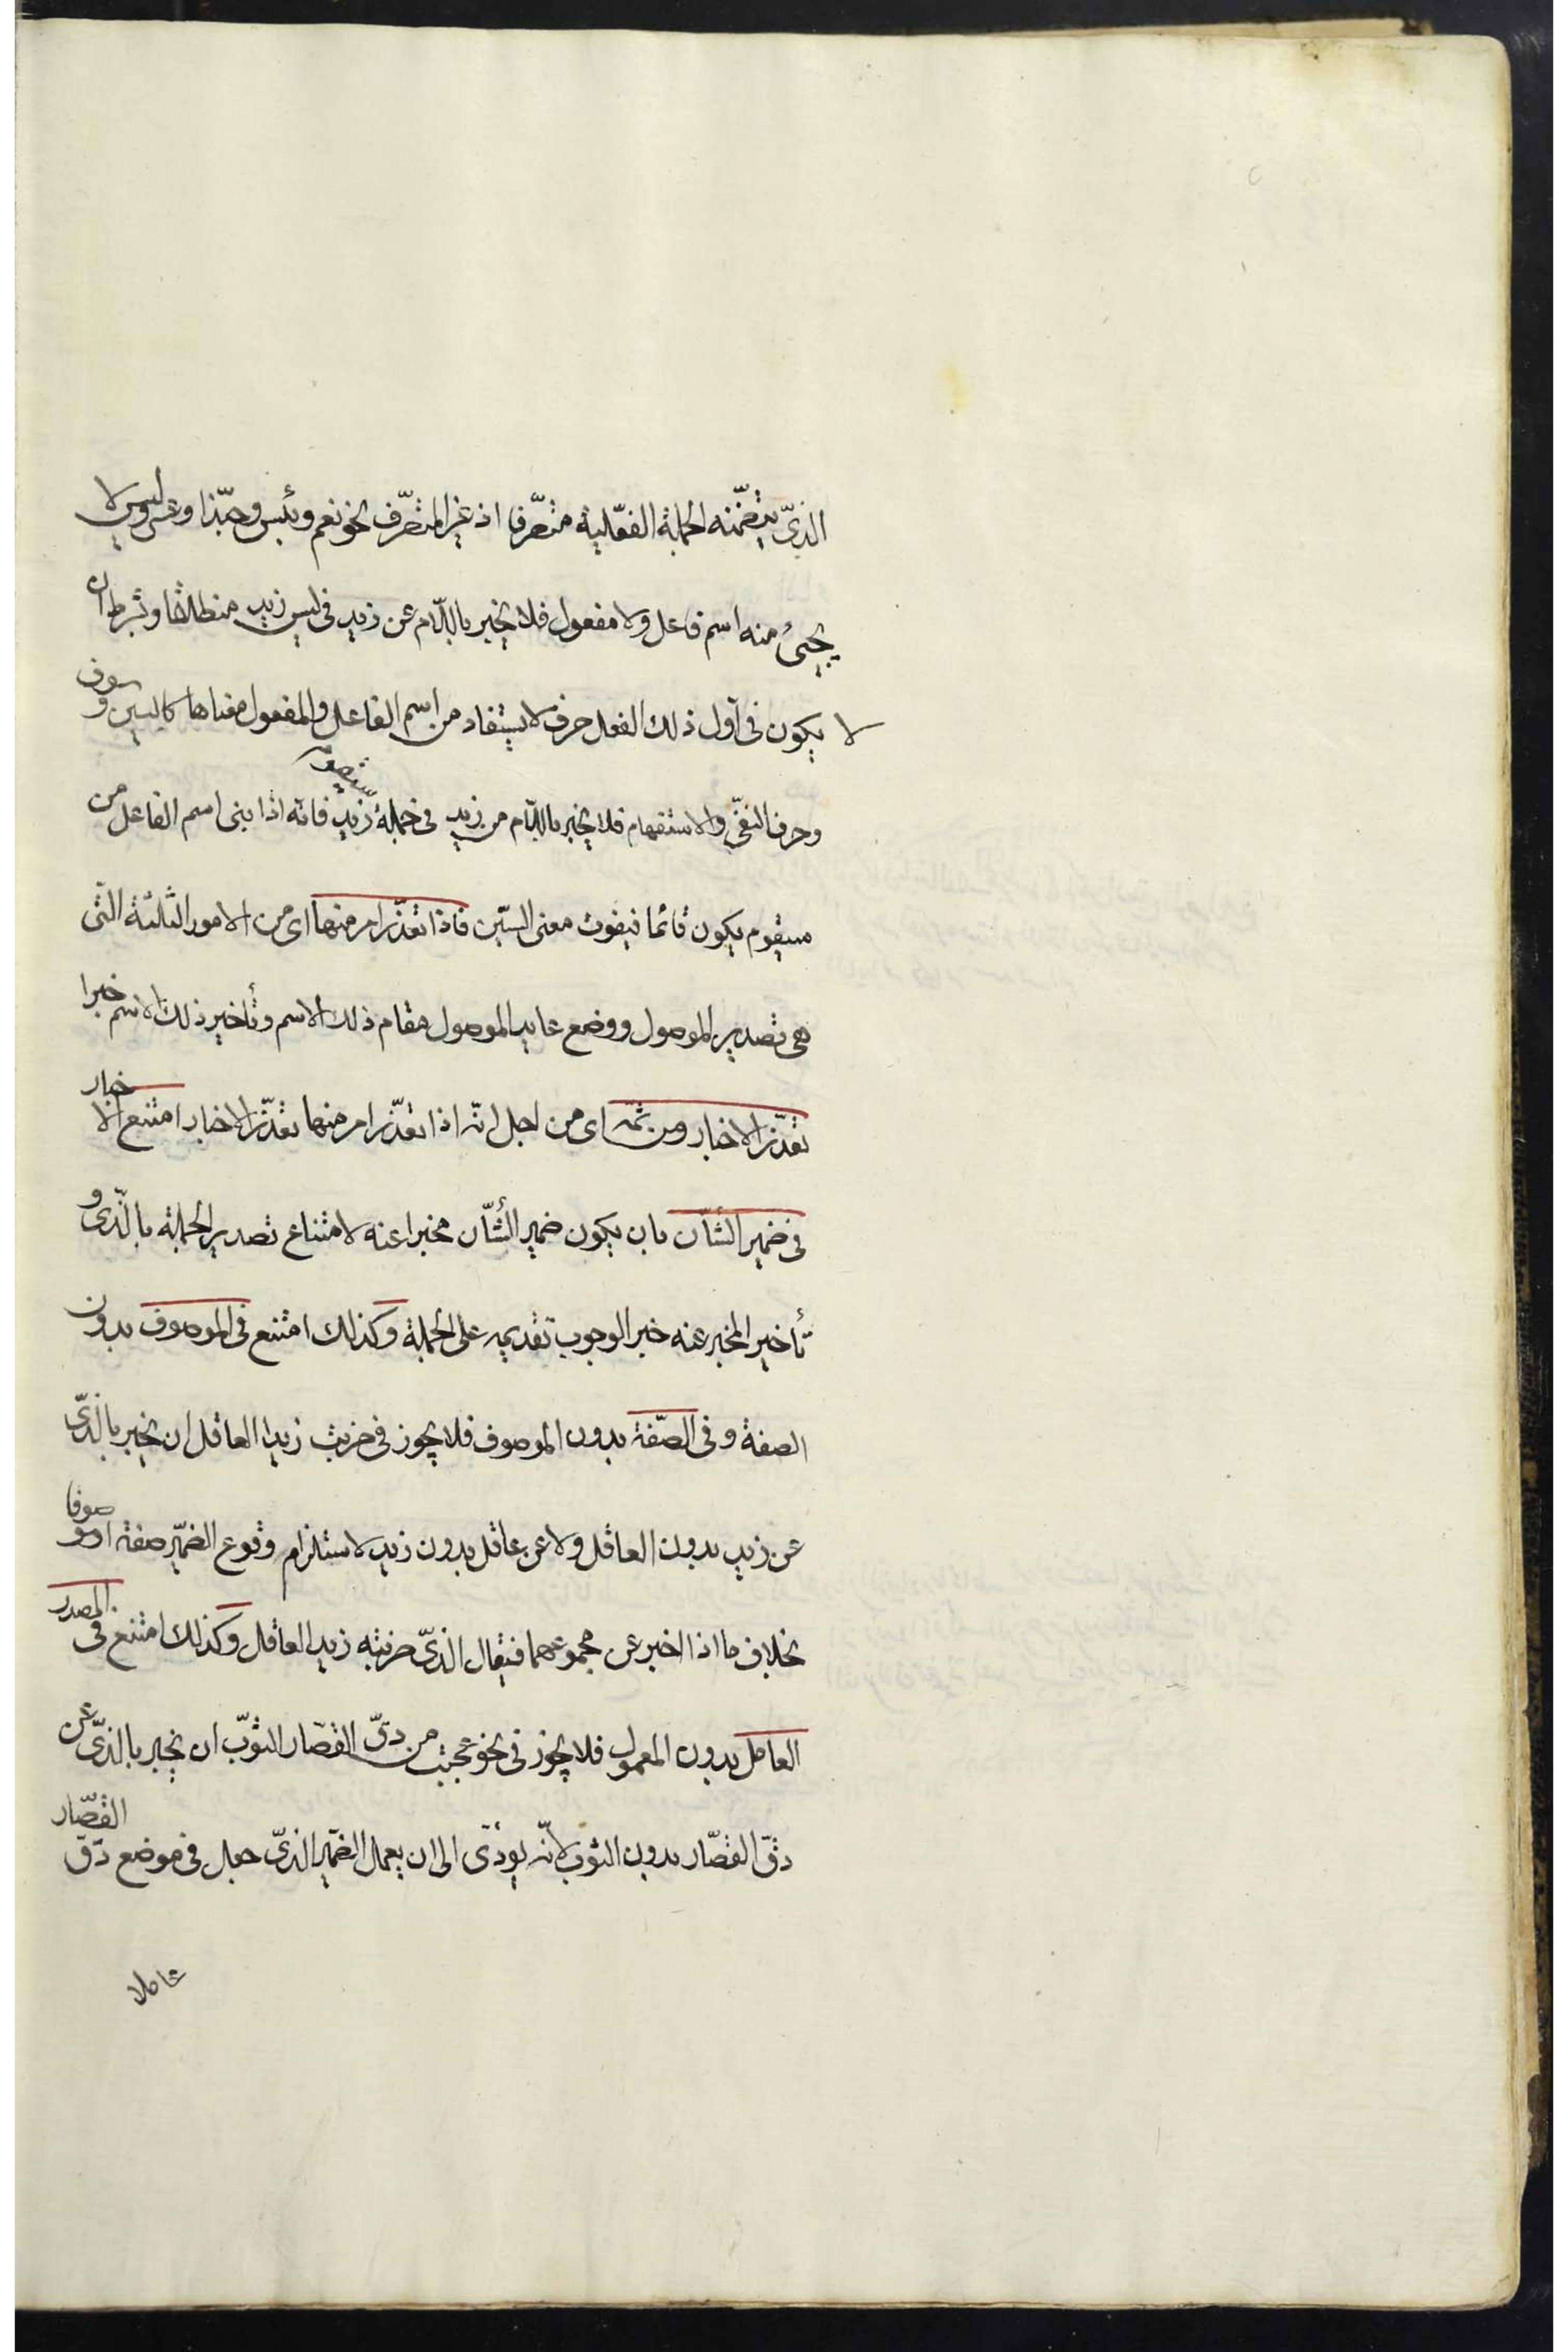 الذىّ يتضمّنه الجملة الفعّلية متصّرفا اذ غير المتصّرف نحو نعم وبئس وحبّذا وعسى وليس لا
يجئُ منه اسم فاعل ولا مفعول فلا يخبر باللّام عن زيد فى ليس زيد منطلقا وبشرط ان
لا يكون فى اول ذلك الفعل حرف لا يستفاد من اسم الفاعل والمفعول معناها كالسين وسوف
وحرف النفىّ والاستفهام فلا يخبر باللّام من زيد فى جملة سيقوم زيد فانه اذا بنى اسم الفاعل من
سيقوم يكون قائما فيفوت معنى السّين فاذا تعذّر امر منها اى من الامور الثلثة التّى
هى تصدير الموصول ووضع عايد الموصول مقام ذلك الاسم وتأخير ذلك الاسم خبرا
تعذّر الاخبار ومن ثمّه اى من اجل انّه اذا تعذّر امر منها تعذّر الاخبار امتنع الاخبار
فى ضمير الشاّن بان يكون ضمير الشأّن مخبرا عنه لامتناع تصدير الجملة بالّذى و
تأخير المخبر عنه خبر الوجوب تقديمه على الجملة وكذلك امتنع فى الموصوف بدون
الصفة وفى الصّفة بدون الموصوف فلا يجوز فى ضربت زيدا العاقل ان يخبر بالذّى
عن زيد بدون العاقل ولا عن عاقل بدون زيد لاستلزام وقوع الضمّير صفة او موصوفا
بخلاف ما اذا اخبر عن مجموعهما فيقال الذىّ ضربته زيد العاقل وكذلك امتنع فى المصدر
العامل بدون المعمول فلا يجوز فى نحو عجبت من دقّ القصّار الثوّب ان يخبر بالذىّ عن
دقّ القصّار بدون الثوب لانّه يودّى الى ان يعمل الضمّير الذىّ جعل فى موضع دقّ القصّار
عاملا